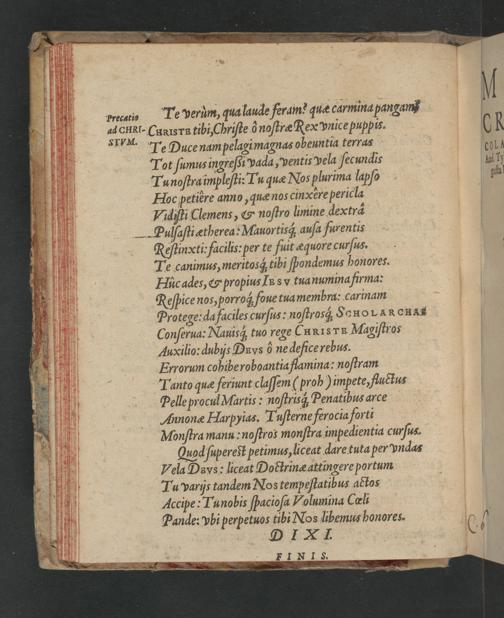 Precatio
ad CHRI-
STVM.
Te verùm, qua laude feram? quæ carmina pangam?
CHRISTE tibi, Christe ô nostræ Rex vnice puppis.
Te Duce nam pelagi magnas obeuntia terras
Tot sumus ingreßi vada, ventis vela secundis
Tu nostra implesti: Tu quæ Nos plurima lapso
Hoc petiêre anno, quæ nos cinxêre pericla
Vidisti Clemens, & nostro limine dextrâ
Pulsasti ætherea: Mauortisq́; ausa furentis
Restinxti: facilis: per te fuit æquore cursus.
Te canimus, meritosq́; tibi spondemus honores.
Hûc ades, & propius IESV tua numina firma:
Respice nos, porroq́; foue tua membra: carinam
Protege: da faciles cursus: nostrosq́; SCHOLARCHAS
Conserua: Nauisq́; tuo rege CHRISTE Magistros
Auxilio: dubijs DEVS ô ne defice rebus.
Errorum cohibe roboantia flamina: nostram
Tanto quæ feriunt classem (proh) impete, fluctus
Pelle procul Martis: nostrisq́; Penatibus arce
Annonæ Harpyias. Tu sterne ferocia forti
Monstra manu: nostros monstra impedientia cursus.
Quod superest petimus, liceat dare tuta per vndas
Vela DEVS: liceat Doctrinæ attingere portum
Tu varijs tandem Nos tempestatibus actos
Accipe: Tu nobis spaciosa Volumina Cœli
Pande: vbi perpetuos tibi Nos libemus honores.
DIXI.
FINIS.
M
CR
COLA